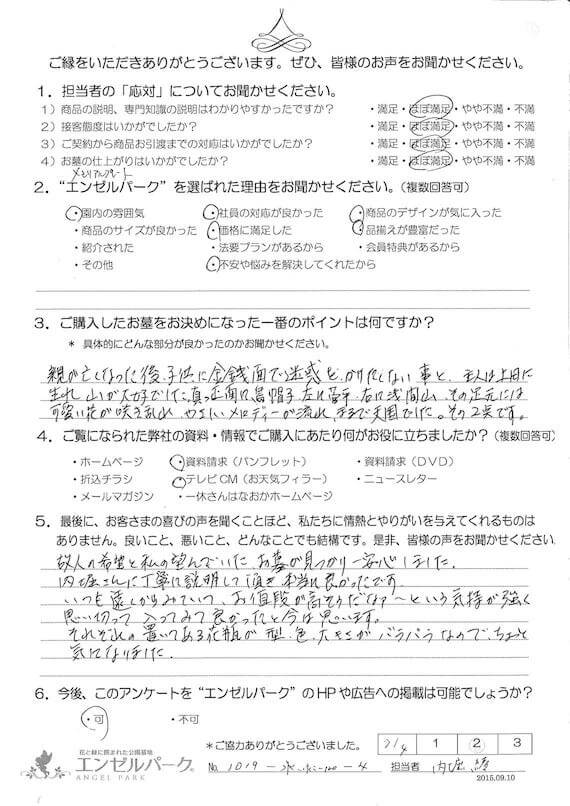 ご縁をいただきありがとうございます。ぜひ、皆様のお声をお聞かせください。
1．担当者の「応対」についてお聞かせください。
1）商品の説明、専門知識の説明はわかりやすかったですか？ ・満足・ほぼ満足・やや不満・不満
2）接客態度はいかがでしたか？ ・満足・ほぼ満足・やや不満・不満
3）ご契約から商品お引渡までの対応はいかがでしたか？ ・満足・ほぼ満足・やや不満・不満
4）お墓の仕上がりはいかがでしたか？ ・満足・ほぼ満足・やや不満・不満
2．“エンゼルパーク”を選ばれた理由をお聞かせください。（複数回答可）
・園内の雰囲気 ・社員の対応が良かった ・商品のデザインが気に入った
・商品のサイズが良かった ・価格に満足した ・品揃えが豊富だった
・紹介された ・法要プランがあるから ・会員特典があるから
・その他 ・不安や悩みを解決してくれたから
3．ご購入したお墓をお決めになった一番のポイントは何ですか？
* 具体的にどんな部分が良かったのかお聞かせください。
親が亡くなった後、子供に金銭面で迷惑をかけたくない事と、主人は上田に
生れ 山が大好でした。真っ正面に烏帽子 左に 右に浅間山、その足元には
可愛い花が咲き乱れ やさしいメロディーが流れ、その2点です。
4．ご覧になられた弊社の資料・情報でご購入にあたり何がお役に立ちましたか？（複数回答可）
・ホームページ ・資料請求（パンフレット） ・資料請求（DVD）
・折込チラシ ・テレビCM（お天気フィラー） ・ニュースレター
・メールマガジン ・一休さんはなおかホームページ
5．最後に、お客さまの喜びの声を聞くことほど、私たちに情熱とやりがいを与えてくれるものは
ありません。良いこと、悪いこと、どんなことでも結構です。是非、皆様の声をお聞かせください。
故人の希望と私の望んでいた お墓が見つかり一安心しました。
内堀さんに丁寧に説明して頂き本当に良かったです。
いつも遠くからみていて、お値段が高そうだなァ〜という気持が強く
思い切って入ってみて良かったと今は思います。
それぞれの置いてある花瓶が型、色、大きさがバラバラなので、ちょっと
気になりました。
6．今後、このアンケートを“エンゼルパーク”のHPや広告への掲載は可能でしょうか？
・可 ・不可
*ご協力ありがとうございました。 1 2 3
花と緑に囲まれた公園墓地
エンゼルパーク®
ANGEL PARK
No. 1019 担当者 内堀
2015.09.10